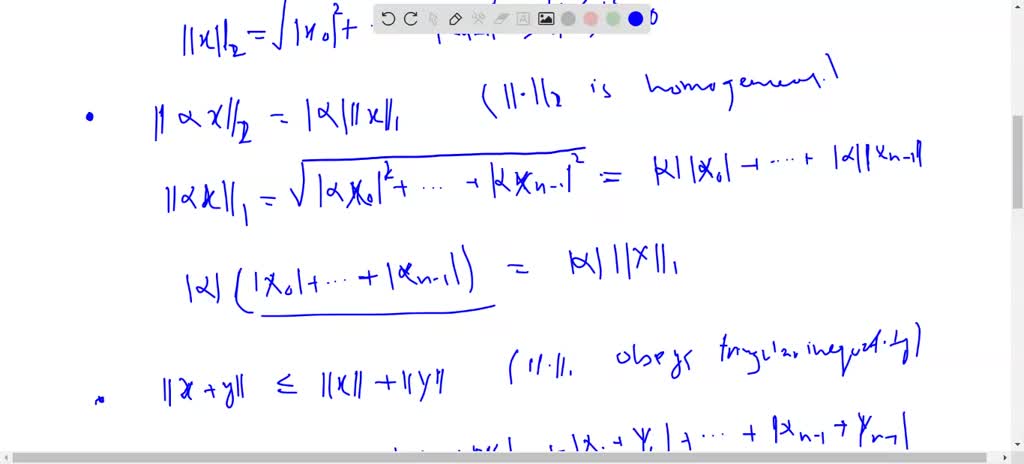 ‖x‖₂ = √|x₀|² +
• ‖αx‖₂ = |α|‖x‖₁ (‖·‖₂ is homogeneous)
‖αx‖₁ = √|αx₀|² + ··· + |αxₙ₋₁|² = |α||x₀| + ··· + |α||xₙ₋₁|
|α| (|x₀| + ··· + |xₙ₋₁|) = |α| ‖x‖₁
• ‖x + y‖ ≤ ‖x‖ + ‖y‖ (‖·‖₁ obeys triangular inequality)
+ ··· + |xₙ₋₁ + yₙ₋₁|